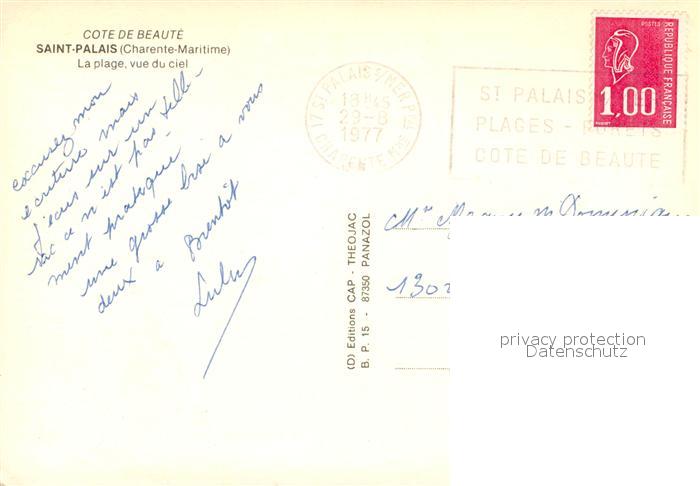 COTE DE BEAUTÉ
SAINT-PALAIS (Charente-Maritime)
La plage, vue du ciel
excusez mon
ecriture mais
j'ecris sur un
sac ce n'est pas telle-
ment pratique
une grosse bise a vous
deux a Bientôt
Lulu
17 ST PALAIS S/MER PPAL
18H45
29-8
1977
CHARENTE MME
ST PALAIS
PLAGES - FORETS
COTE DE BEAUTE
POSTES
REPUBLIQUE FRANÇAISE
1,00
(D) Editions CAP - THEOJAC
B. P. 15 - 87350 PANAZOL
130
privacy protection
Datenschutz